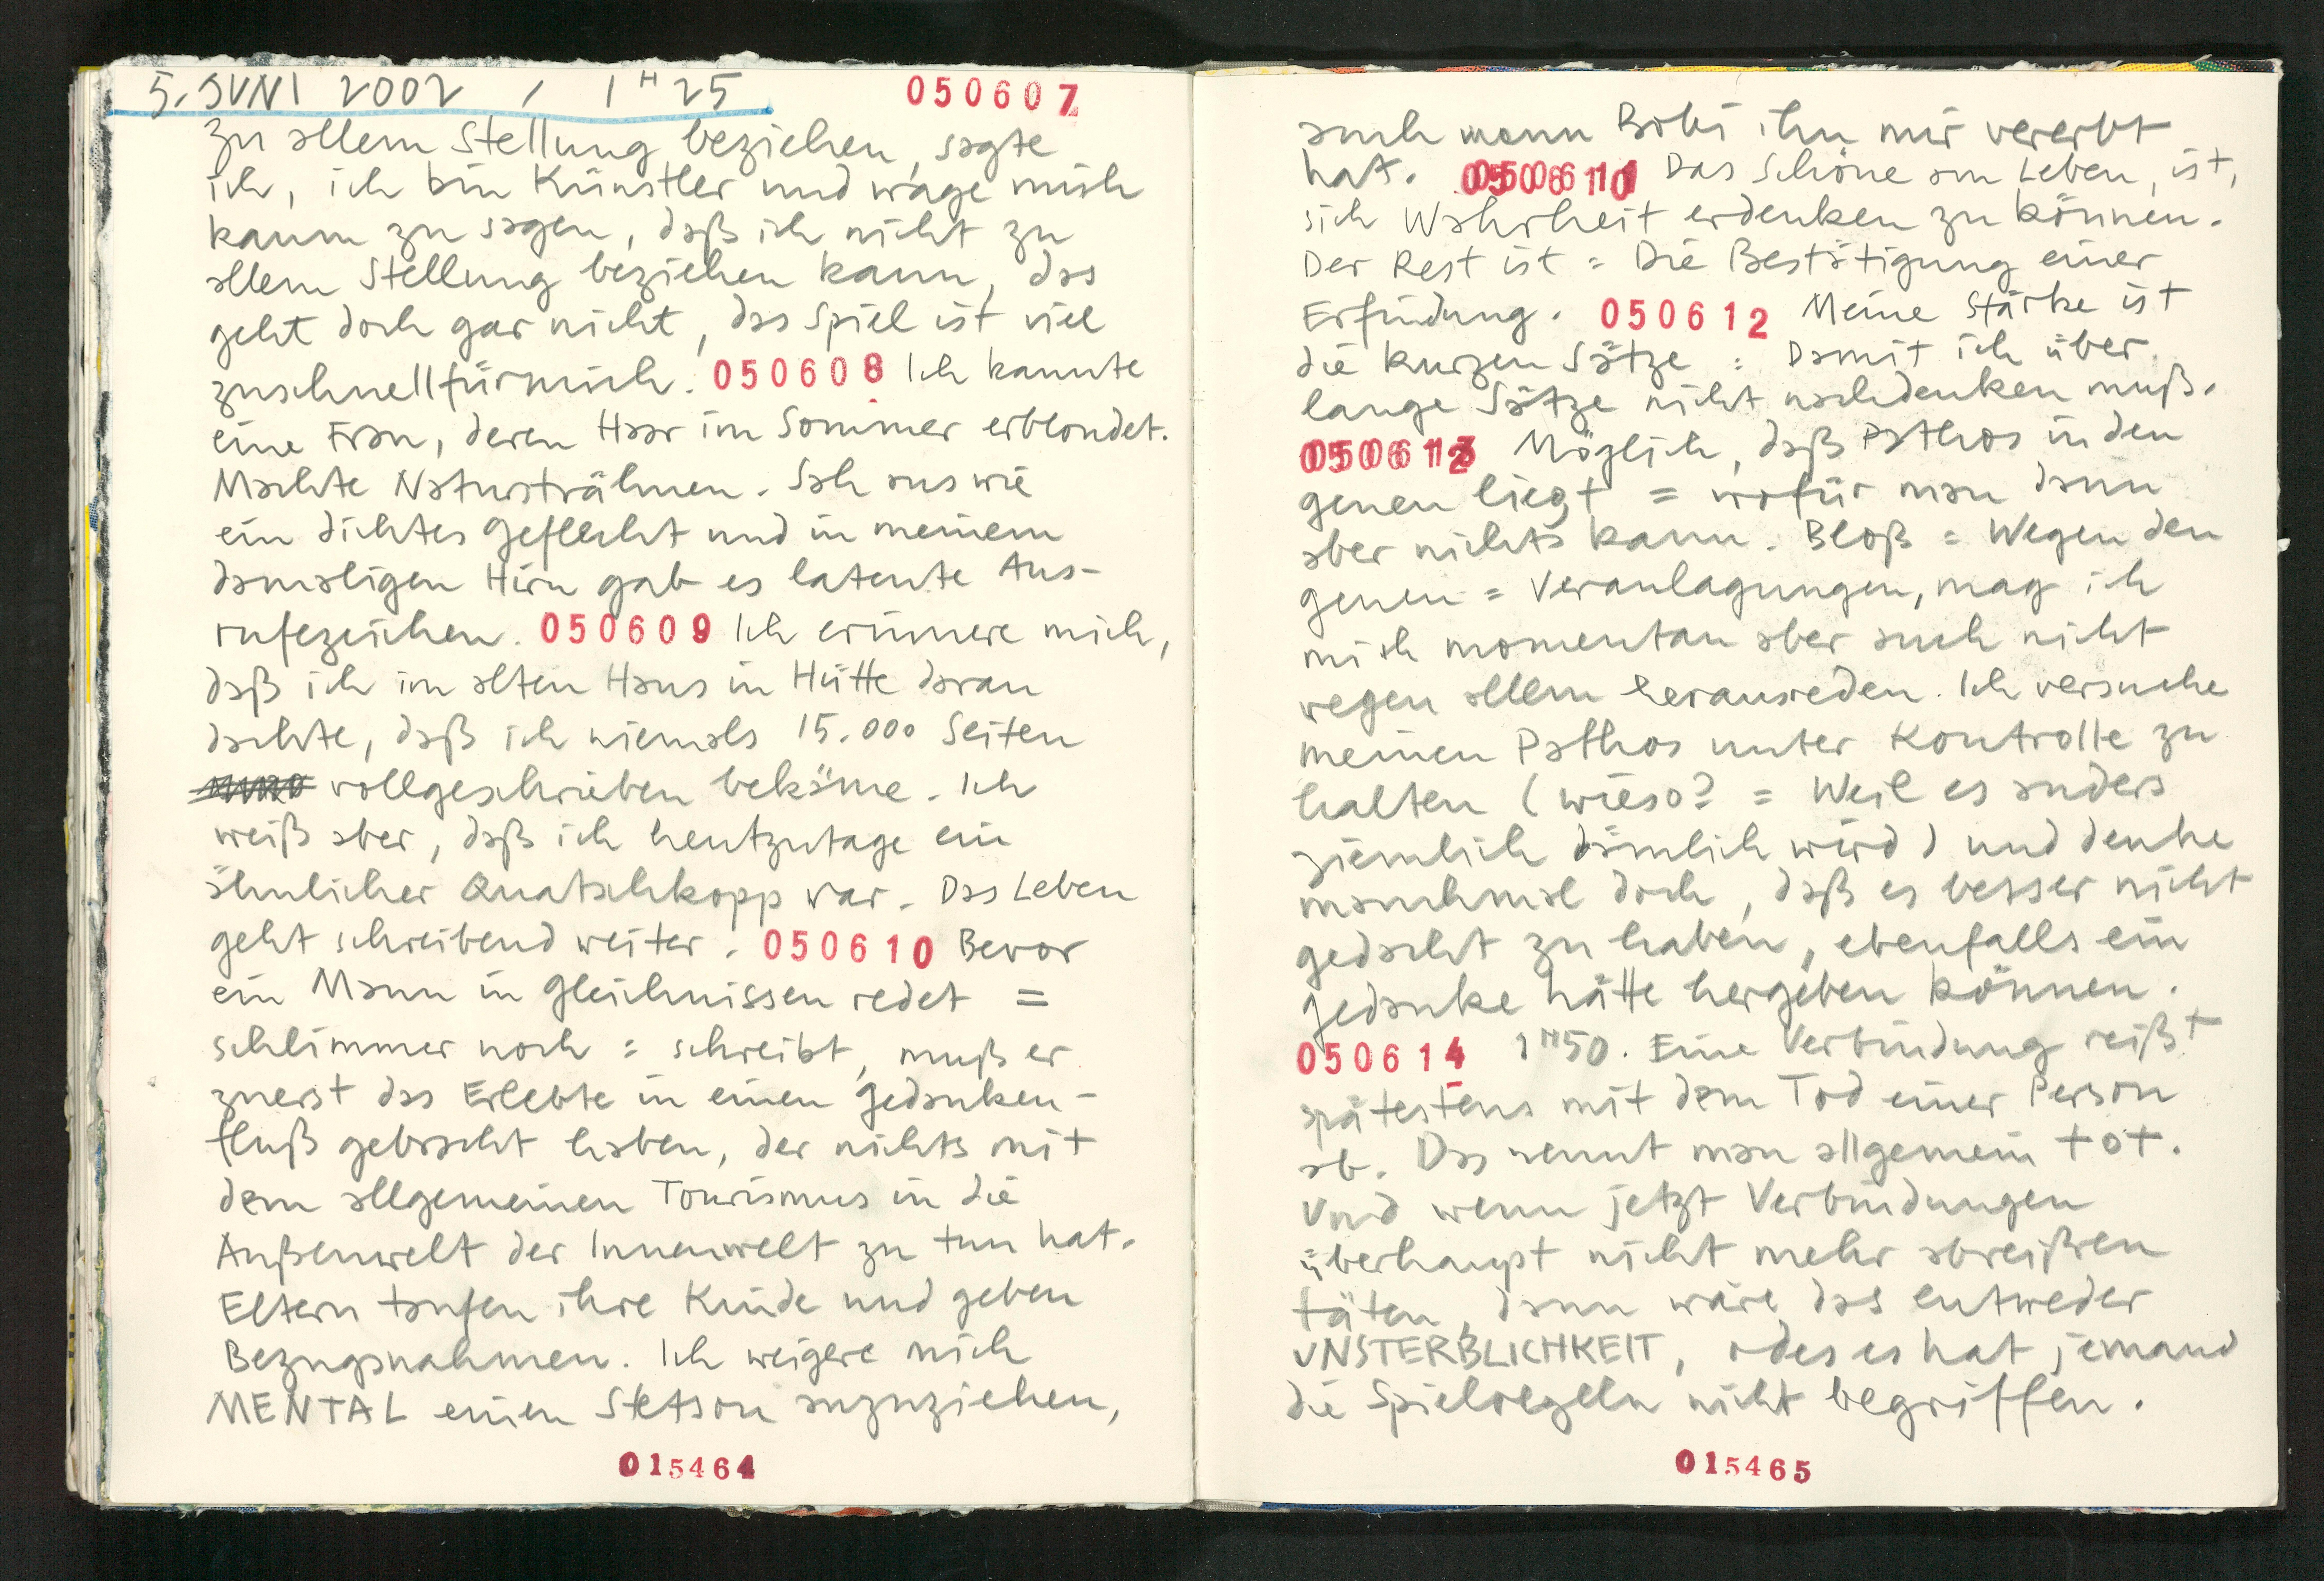 5. JUNI 2002 / 1H25 050607
zu allem Stellung beziehen, sagte
ich, ich bin Künstler und wage mich
kaum zu sagen, daß ich nicht zu
allem Stellung beziehen kann, das
geht doch gar nicht, das Spiel ist viel
zuschnellfürmich. 050608 Ich kannte
eine Frau, deren Haar im Sommer erblondet.
Machte Natursträhnen. Sah aus wie
ein dichtes Geflecht und in meinem
damaligen Hirn gab es latente Aus-
rufezeichen. 050609 Ich erinnere mich,
daß ich im alten Haus in Hütte daran
dachte, daß ich niemals 15.000 Seiten
vollgeschrieben bekäme. Ich
weiß aber, daß ich heutzutage ein
ähnlicher Quatschkopp war. Das Leben
geht schreibend weiter. 050610 Bevor
ein Mann in Gleichnissen redet =
schlimmer noch = schreibt, muß er
zuerst das Erlebte in einen Gedanken-
fluß gebracht haben, der nichts mit
dem allgemeinen Tourismus in die
Außenwelt der Innenwelt zu tun hat.
Eltern taufen ihre Kinde und geben
Bezugsnahmen. Ich weigere mich
MENTAL einen Stetson anzuziehen,
015464
auch wenn Bobi ihn mir vererbt
hat. Das Schöne am Leben, ist,
sich Wahrheit erdenken zu können.
Der Rest ist = Die Bestätigung einer
Erfindung. 050612 Meine Stärke ist
die kurzen Sätze = Damit ich über
lange Sätze nicht nachdenken muß.
050613 Möglich, daß Pathos in den
Genen liegt = wofür man dann
aber nichts kann. Bloß = Wegen den
Genen = Veranlagungen, mag ich
mich momentan aber auch nicht
wegen allem herausreden. Ich versuche
meinen Pathos unter Kontrolle zu
halten (wieso? = Weil es anders
ziemlich dämlich wird) und denke
manchmal doch, daß es besser nicht
gedacht zu haben, ebenfalls ein
Gedanke hätte hergeben können.
050614 1H50. Eine Verbindung reißt
spätestens mit dem Tod einer Person
ab. Das nennt man allgemein tot.
Und wenn jetzt Verbindungen
überhaupt nicht mehr abreißen
täten, dann wäre das entweder
UNSTERBLICHKEIT, oder es hat jemand
die Spielregeln nicht begriffen.
015465